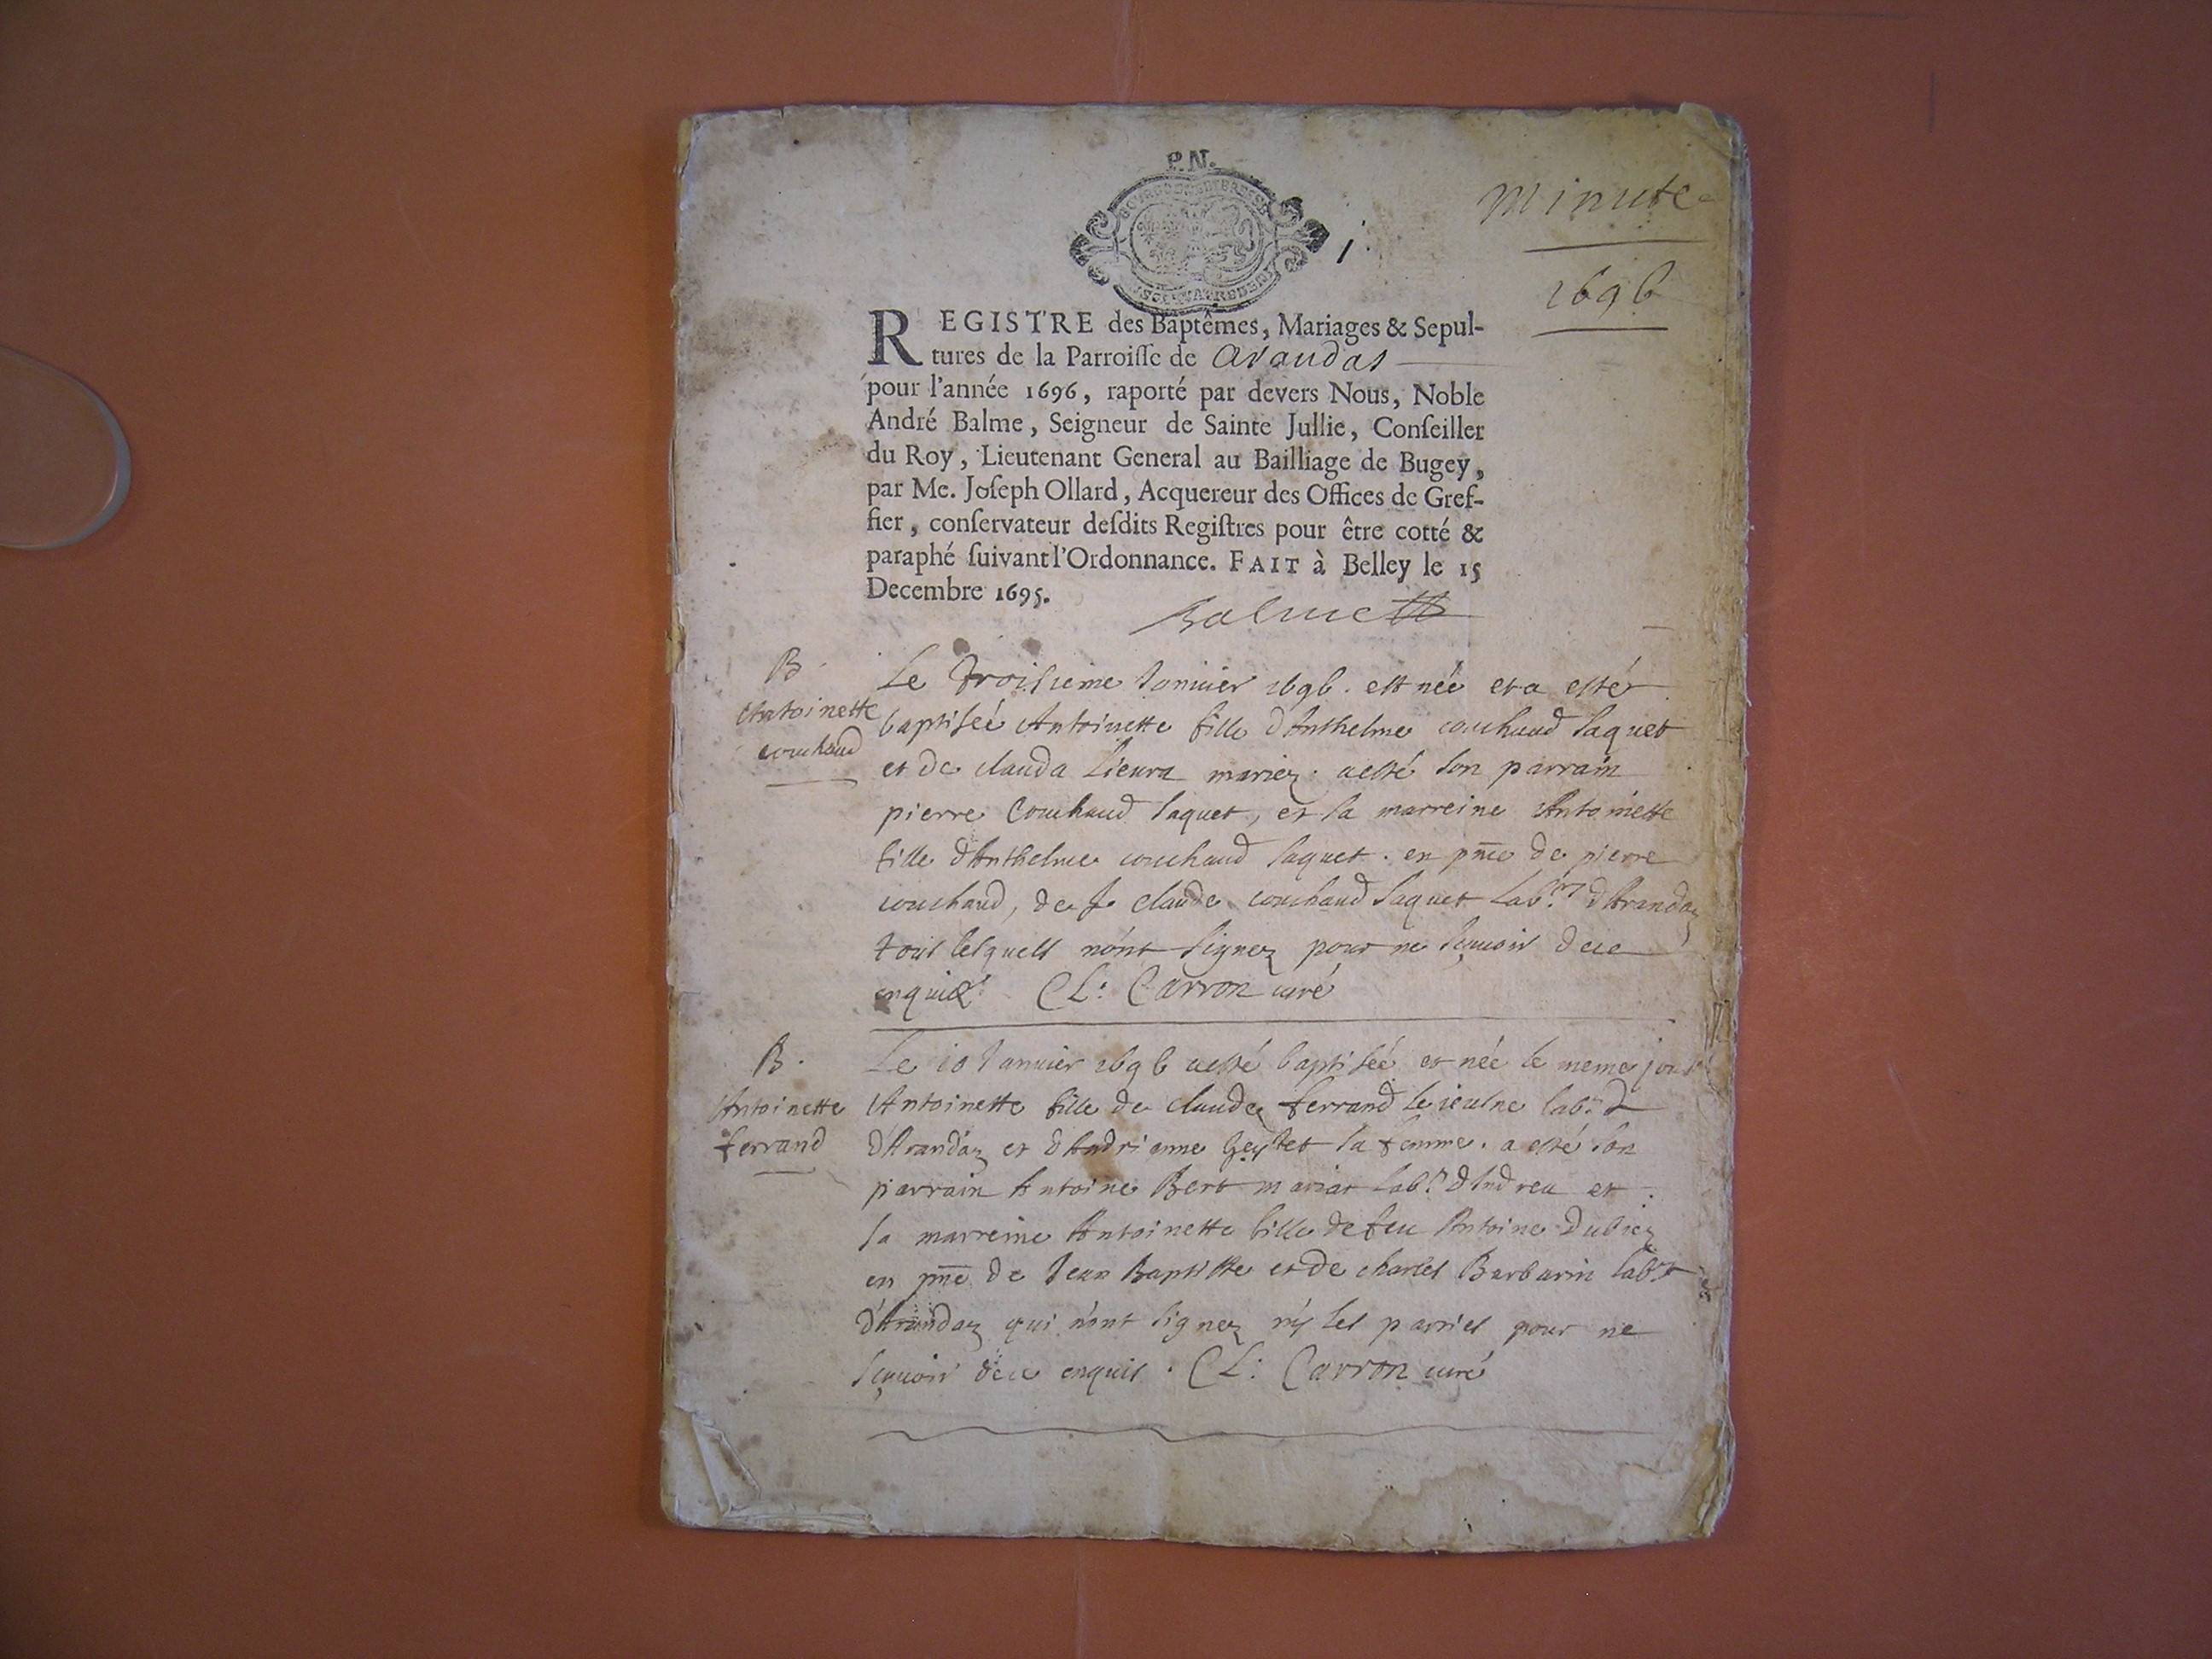 P.N.
Minute
1696
REGISTRE des Baptêmes, Mariages & Sepul-
tures de la Parroisse de Arandas
pour l'année 1696, raporté par devers Nous, Noble
André Balme, Seigneur de Sainte Jullie, Conseiller
du Roy, Lieutenant General au Bailliage de Bugey,
par Me. Joseph Ollard, Acquereur des Offices de Gref-
fier, conservateur desdits Registres pour être cotté &
paraphé suivant l'Ordonnance. FAIT à Belley le 15
Decembre 1695.
Balme
B
Antoinette
couhaud
Le troisieme Janvier 1696. est née et a esté
baptiseé Antoinette fille d'Anthelme couhaud saquet
et de clauda mariez. a esté son parrain
pierre Couhaud saquet, et sa marreine Antoinette
fille d'Anthelme couhaud saquet. en pnce de pierre
couhaud, de J. claude couhaud saquet Labr. d'Arandaz
tous lesquels n'ont signez pour ne sçavoir de ce
enquis. CL: Carron curé
B.
Antoinette
ferrand
Le 10 Janvier 1696 a esté baptiseé et née le meme jour
Antoinette fille de claude ferrand le jeusne labr.
d'Arandaz et d'Andrienne sa femme. a esté son
parrain Antoine Bert labr. d'Indreu et
sa marreine Antoinette fille de feu Antoine Dubiez
en pnce de Jean Baptiste et de charles Barbarin labr.
d'Arandaz qui n'ont signez ny les parties pour ne
sçavoir de ce enquis. CL: Carron curé